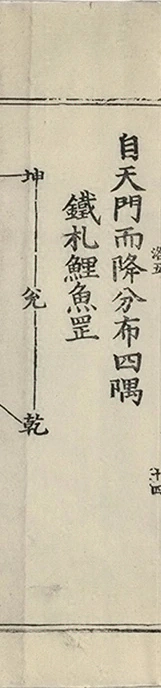 十四
自天門而降分布四隅
鐵札鯉魚罡
坤
兊
乾